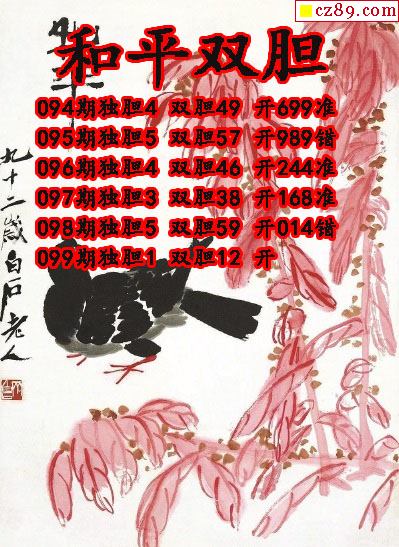 cz89.com
和平双胆
094期独胆4 双胆49 开699准
095期独胆5 双胆57 开989错
096期独胆4 双胆46 开244准
097期独胆3 双胆38 开168准
098期独胆5 双胆59 开014错
099期独胆1 双胆12 开
九十二岁白石老人